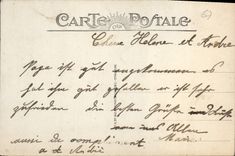 CARTE POSTALE
Chere Helene et Andre
Papa ist gut angekommen es
hat ihm gut gefallen er ist sehr
zufrieden die besten Grüße und Küsse
von uns Allen
aussi de compliment Marie
a d André